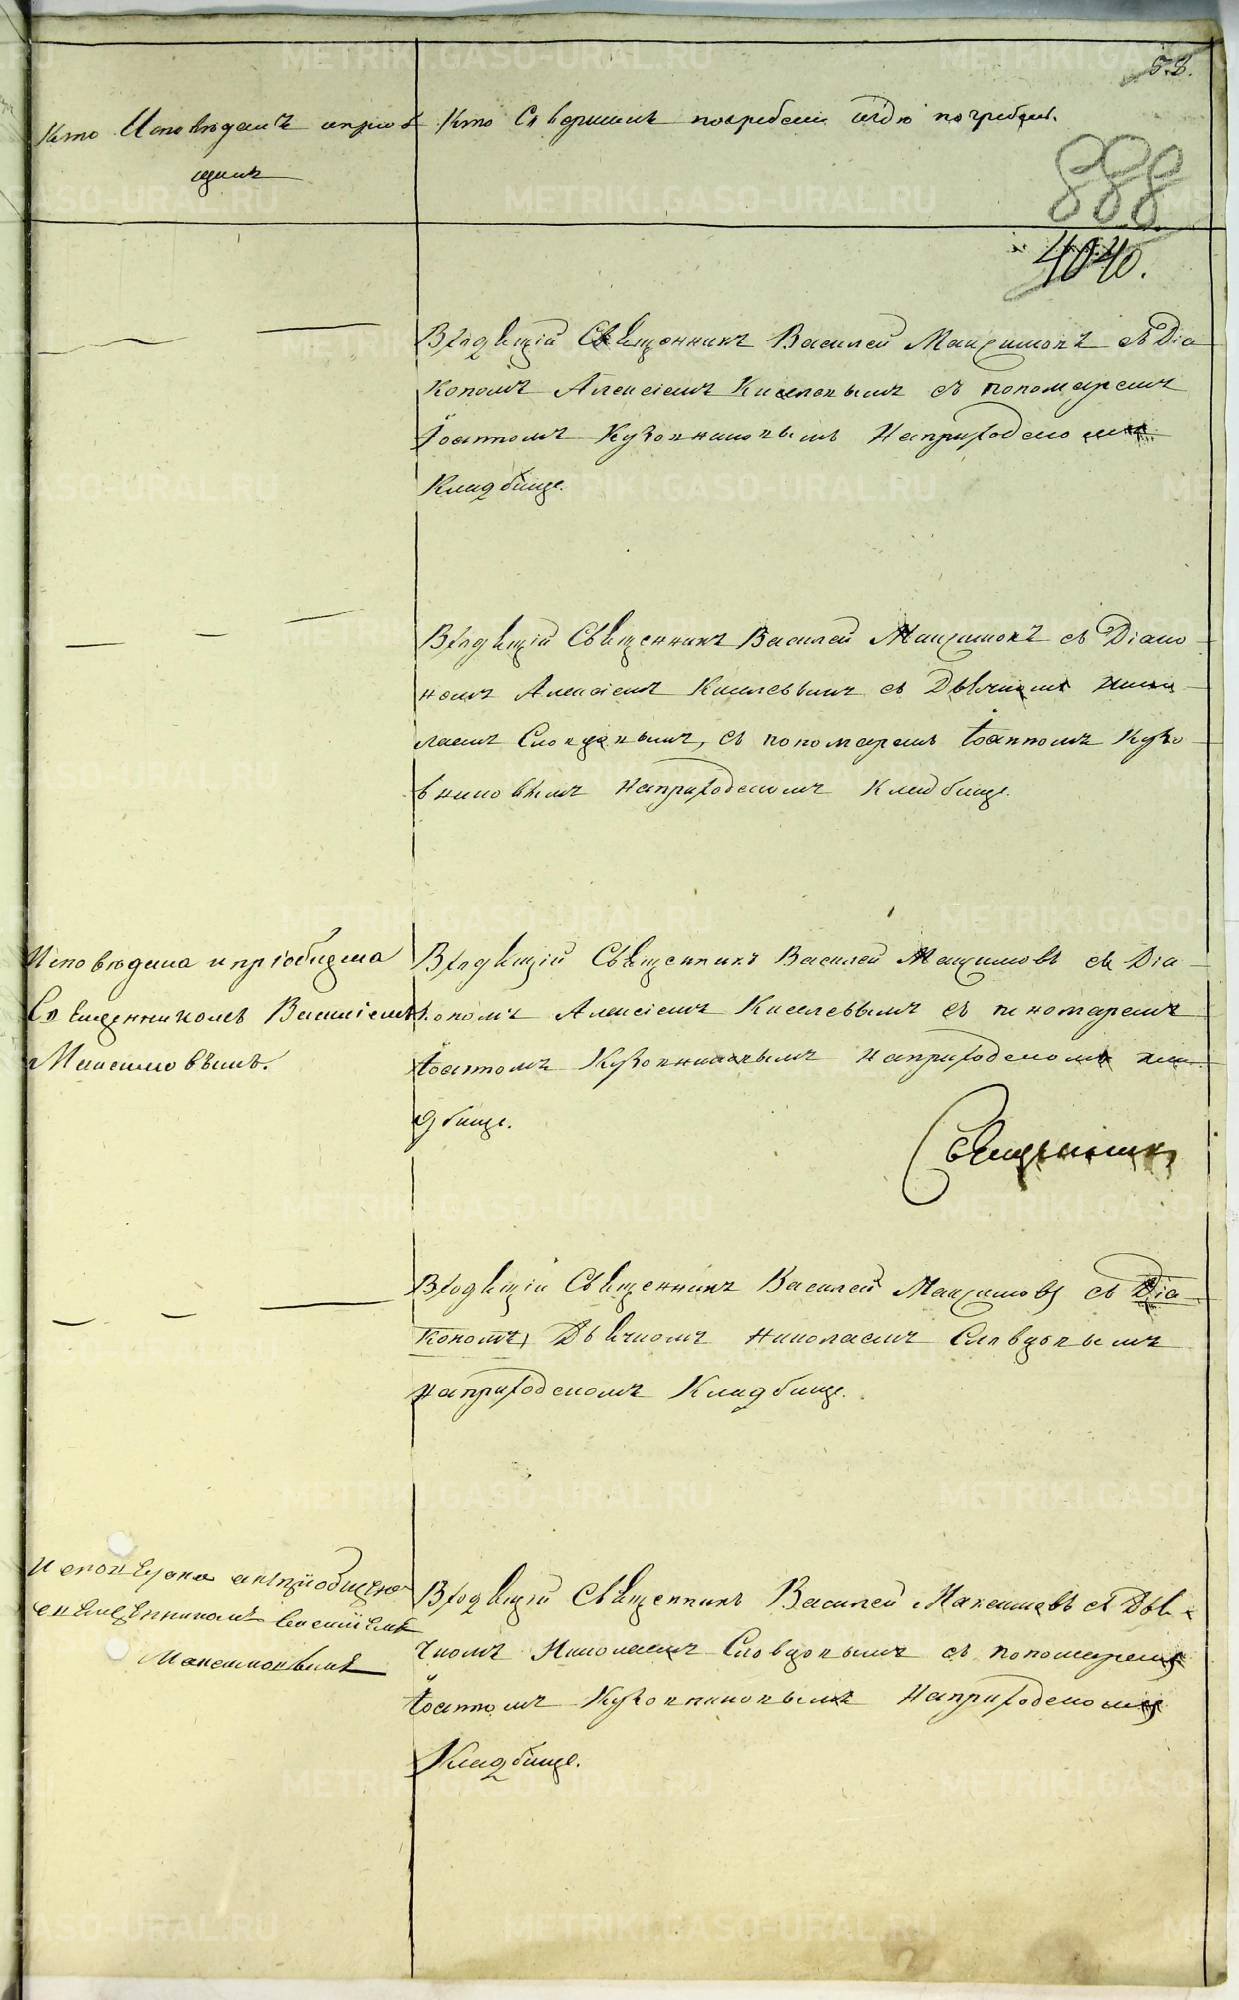 58.
Кто Исповѣдалъ и пріоб
щилъ
Кто Совершилъ погребеніе и гдѣ погребены.
888
4040.
Вѣдущій Священникъ Василей Максимовъ съ Діа
кономъ Алексіемъ Киселевымъ съ пономаремъ
Іоанномъ Кузовниковымъ На приходскомъ
Кладбище.
Вѣдущій Священникъ Василей Максимовъ съ Діако
номъ Алексіемъ Киселевымъ съ Дьячкомъ Нико
лаемъ Словцовымъ, съ пономаремъ Іоанномъ Кузо
вниковымъ На приходскомъ Кладбище.
Исповѣдана и пріобщена
Священникомъ Василіемъ
Максимовымъ.
Вѣдущій Священникъ Василей Максимовъ съ Діа
кономъ Алексіемъ Киселевымъ съ пономаремъ
Іоанномъ Кузовниковымъ На приходскомъ кла
дбище.
Священникъ
Вѣдущій Священникъ Василей Максимовъ съ Діа
кономъ, Дьячкомъ Николаемъ Словцовымъ
На приходскомъ Кладбище.
Исповѣдана и пріобщена
священникомъ Василіемъ
Максимовымъ
Вѣдущій Священникъ Василей Максимовъ съ Дья
чкомъ Николаемъ Словцовымъ съ пономаремъ
Іоанномъ Кузовниковымъ На приходскомъ
Кладбище.